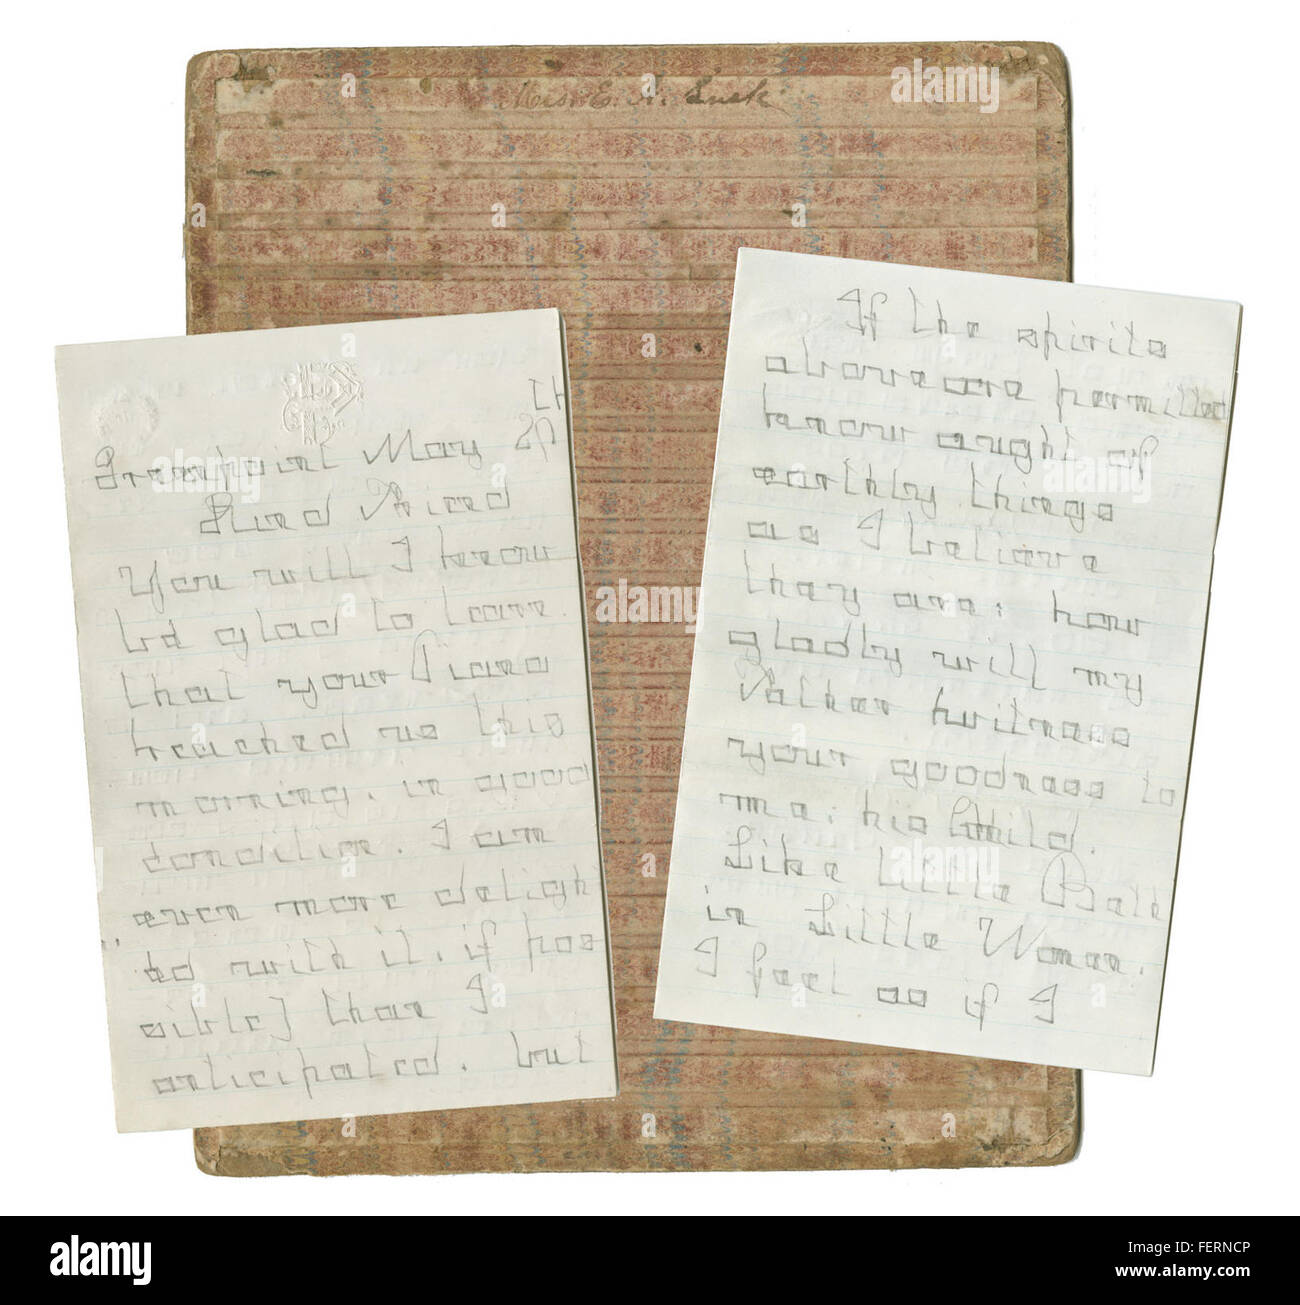 Miss E. A. Lusk
th
Greenpoint May 20
Kind Friend
You will I know
be glad to learn
that your Piano
reached us this
morning. in good
condition. I am
even more deligh
ted with it. if pos
sible] than I
anticipated. but
If the spirits
above are permitted
know aught of
earthly things
as I believe
they are: how
gladly will my
Father witness
your goodness to
me: his Child.
Like little Beth
in Little Women.
I feel as if I
alamy
FERNCP
www.alamy.com